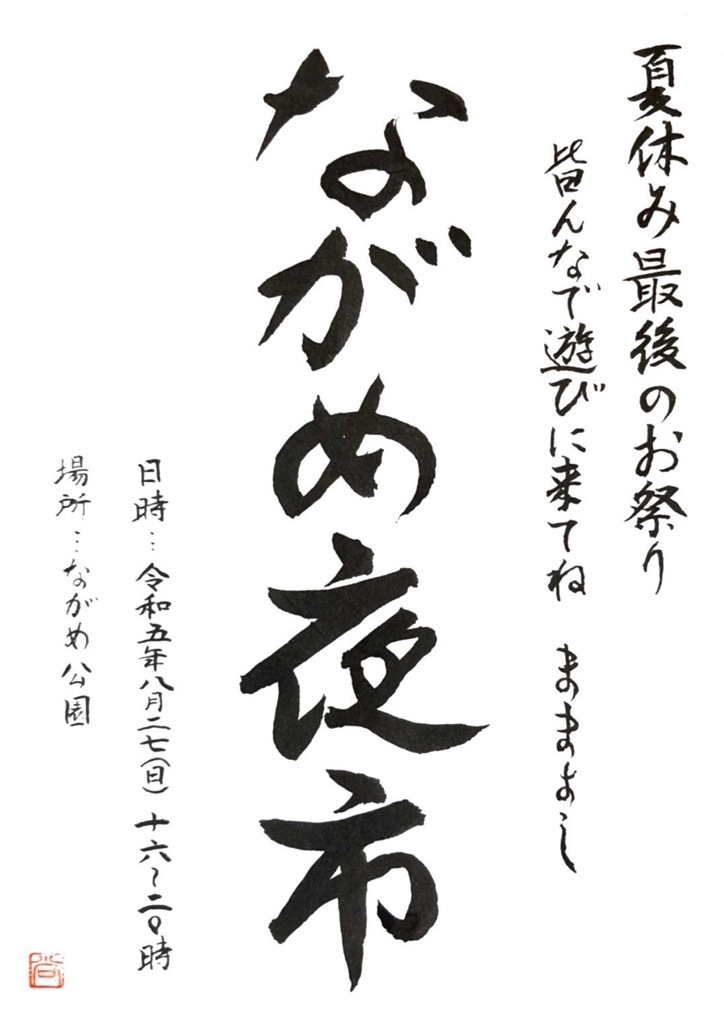 夏休み最後のお祭り
皆んなで遊びに来てね ままよし
ながめ夜市
日時…令和五年八月二七(日)十六~二〇時
場所…ながめ公園